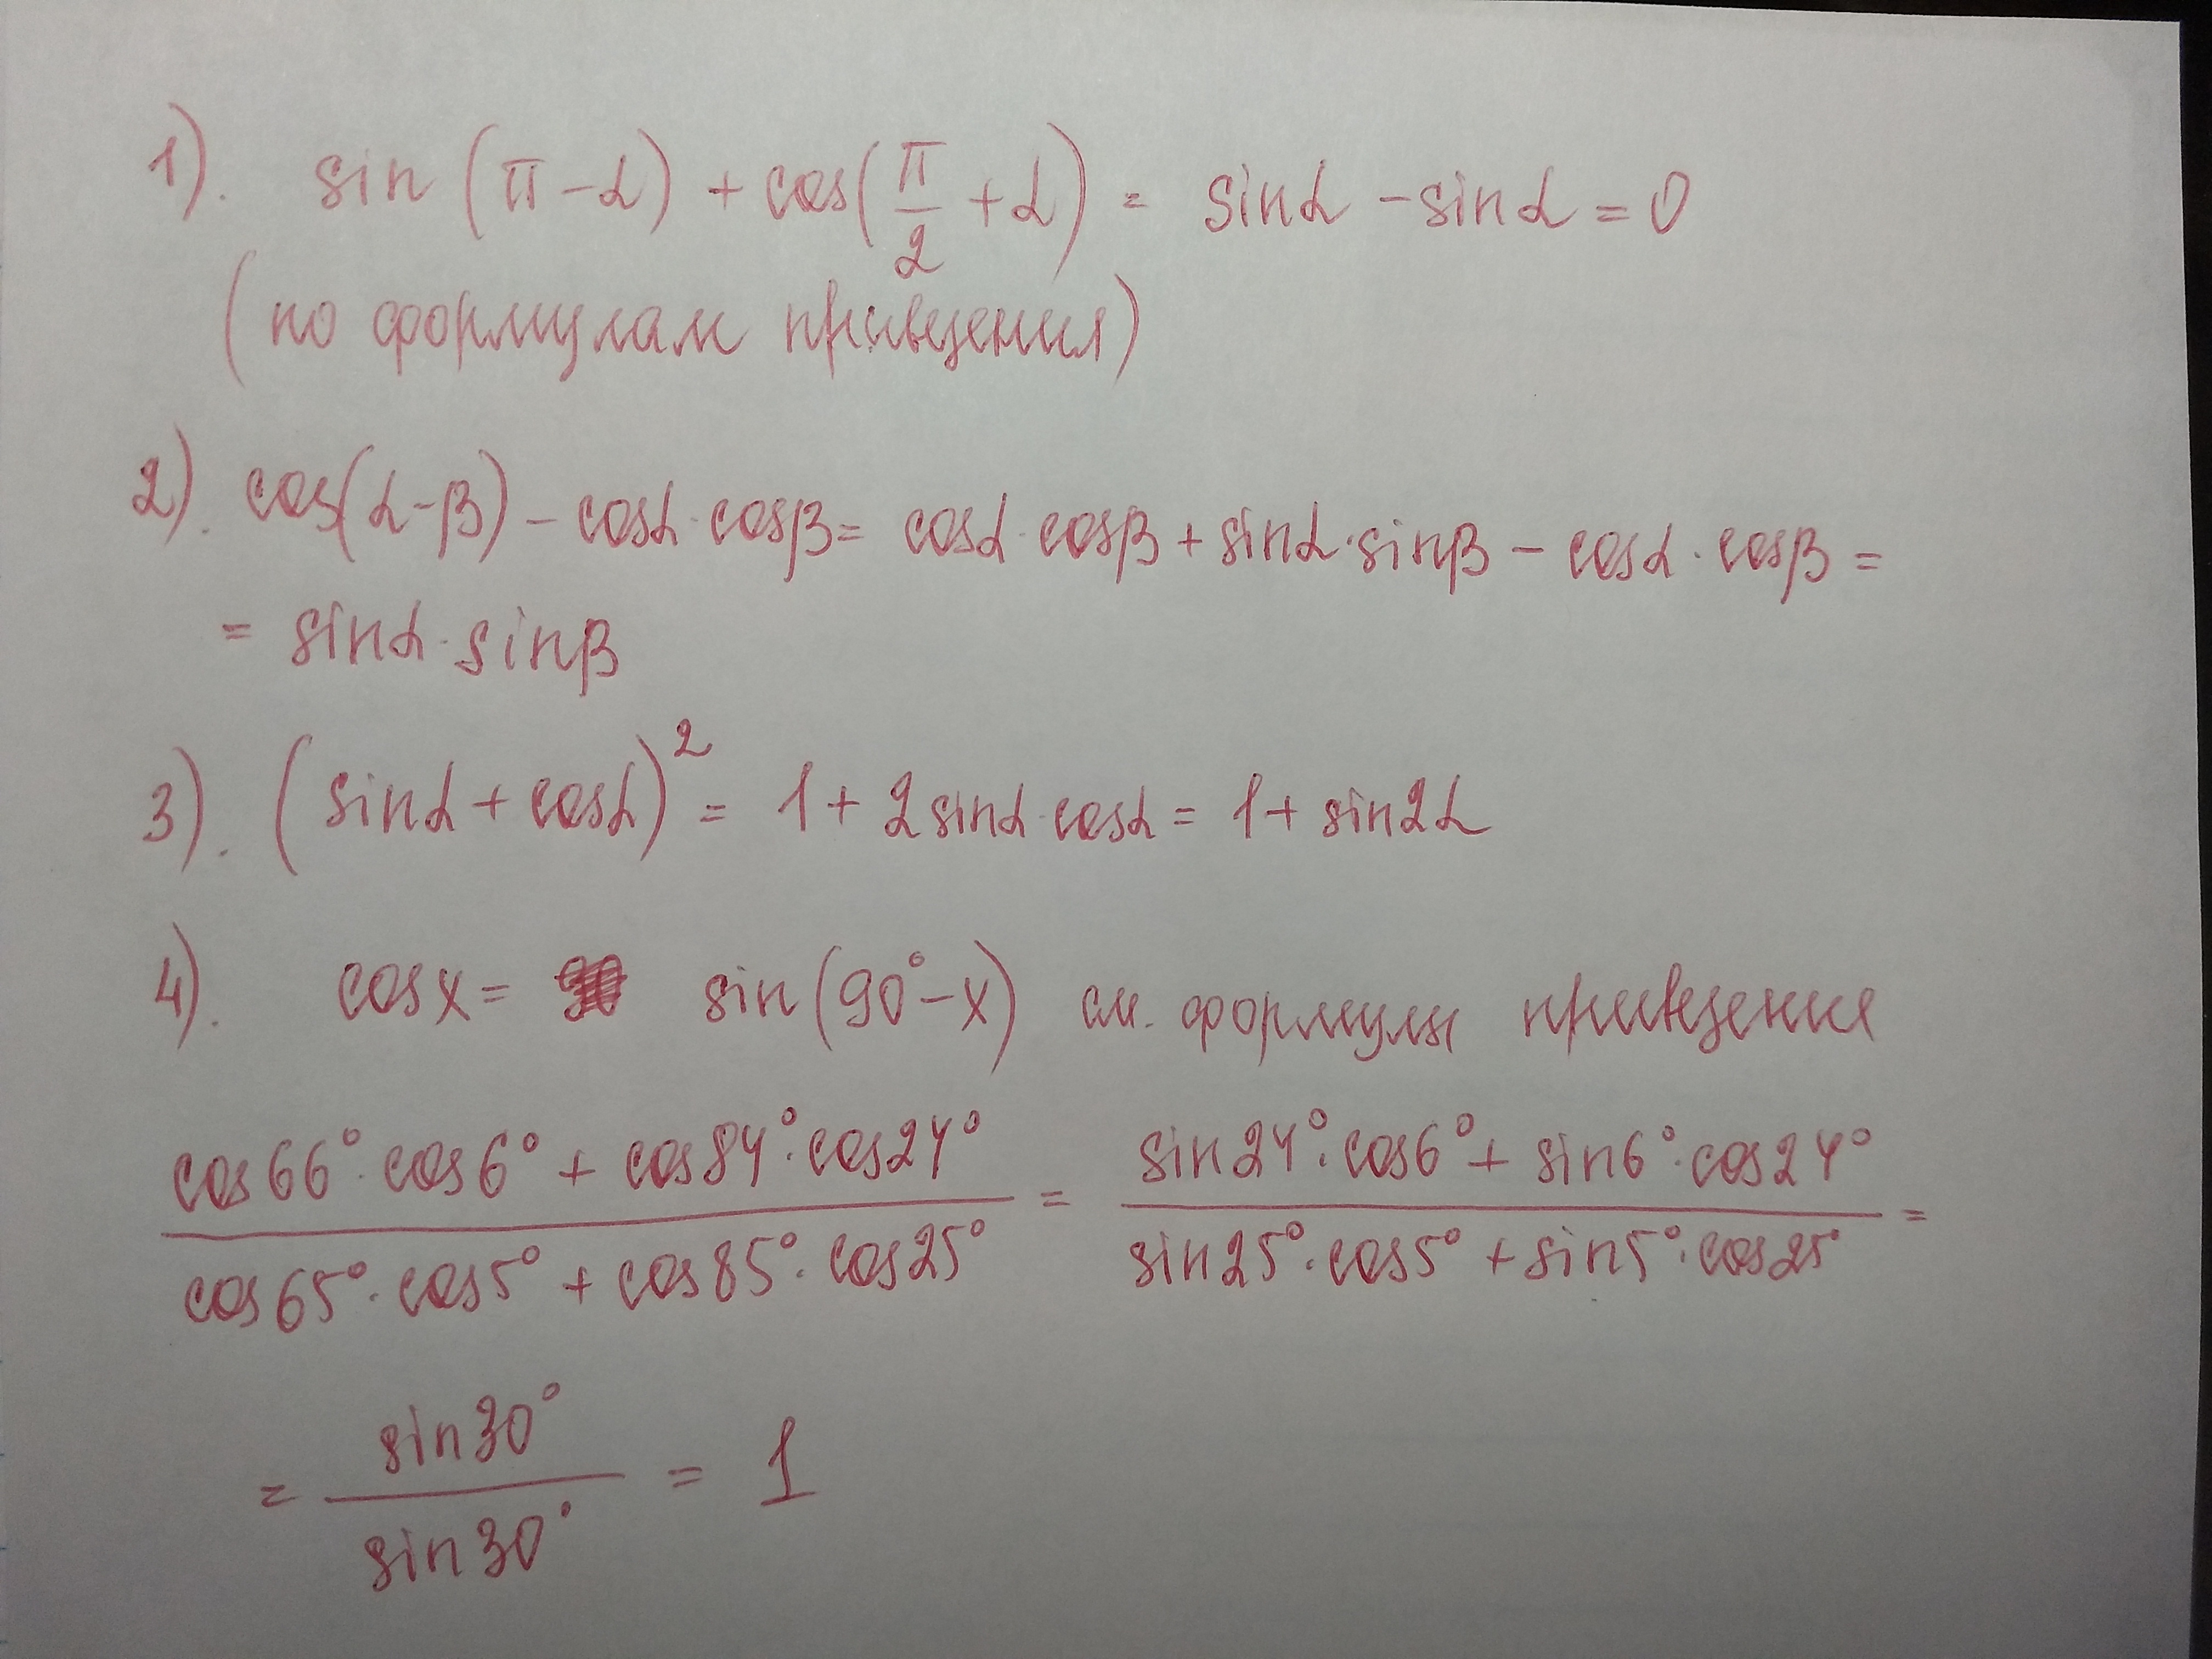 1). sin (π-α) + cos(π/2 +α) = sinα -sinα = 0
(по формулам приведения)
2). cos(α-β) - cosα·cosβ= cosα·cosβ + sinα·sinβ - cosα·cosβ =
= sinα·sinβ
3). (sinα + cosα)² = 1+ 2sinα·cosα = 1+ sin2α
4). cosx = sin(90°-x) см. формулы приведения
(cos66°·cos6° + cos84°·cos24°)/(cos65°·cos5° + cos85°·cos25°) = (sin24°·cos6° + sin6°·cos24°)/(sin25°·cos5° + sin5°·cos25°) =
= sin30°/sin30° = 1